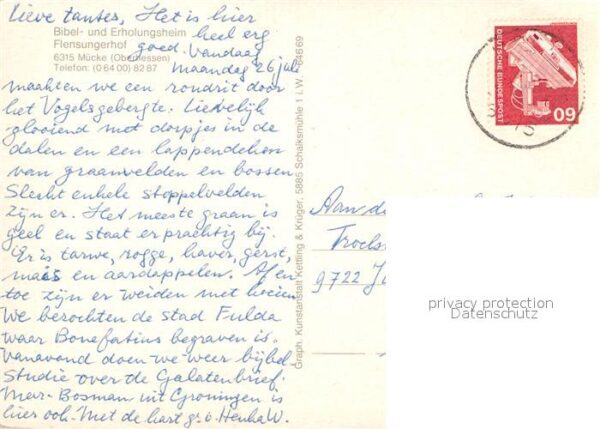 Lieve tantes, Het is hier
heel erg
goed. Vandaag
maandag 26 juli
maakten we een rondrit door
het Vogelsgebergte. Lieflijk
glooiend met dorpjes in de
dalen en een lappendeken
van graanvelden en bossen
Slecht enkele stoppelvelden
zijn er. Het meeste graan is
geel en staat er prachtig bij.
Er is tarwe, rogge, haver, gerst,
mais en aardappelen. Af en
toe zijn er weiden met koeien
We bezochten de stad Fulda
waar Bonefatius begraven is.
Vanavond doen we weer bijbel-
studie over de Galatenbrief.
Bosman uit Groningen is
hier ook. Met de hart. gr.
Bibel- und Erholungsheim
Flensungerhof
6315 Mücke (Oberhessen)
Telefon: (0 64 00) 82 87
Graph. Kunstanstalt Kettling & Krüger, 5885 Schalksmühle 1 i.W. 64669
DEUTSCHE BUNDESPOST
60
Aan de
Troels
9722 J
privacy protection
Datenschutz